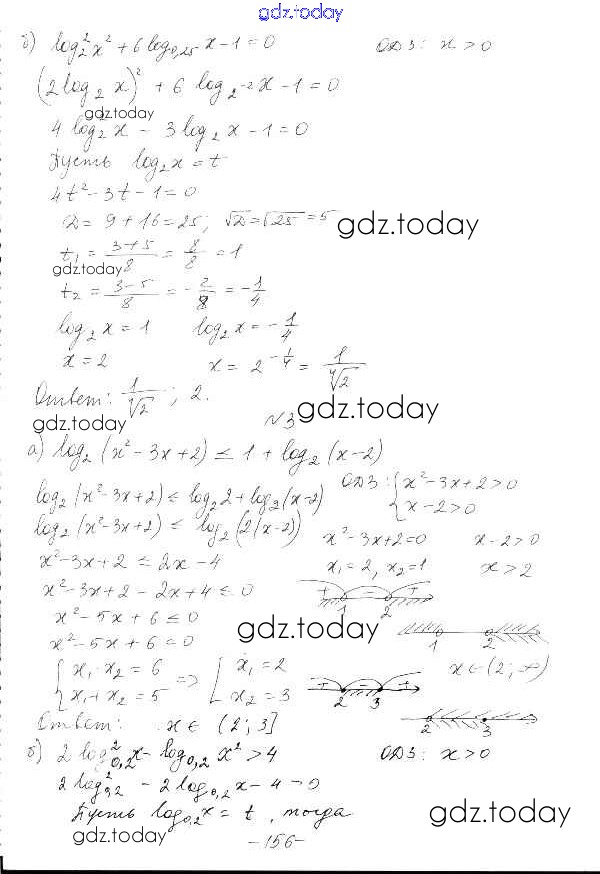 gdz.today
б) log₂² x² + 6 log₀,₂₅ x - 1 = 0   ОДЗ: x > 0
(2 log₂ x)² + 6 log₂-2 x - 1 = 0
gdz.today
4 log₂² x - 3 log₂ x - 1 = 0
Пусть log₂ x = t
4t² - 3t - 1 = 0
D = 9 + 16 = 25; √D = √25 = 5
gdz.today
t₁ = (3+5)/8 = 8/8 = 1
gdz.today
t₂ = (3-5)/8 = -2/8 = -1/4
log₂ x = 1   log₂ x = -1/4
x = 2   x = 2^(-1/4) = 1/⁴√2
Ответ: 1/⁴√2 ; 2.
gdz.today
№3
gdz.today
а) log₂ (x² - 3x + 2) ≤ 1 + log₂ (x - 2)
log₂ (x² - 3x + 2) ≤ log₂ 2 + log₂ (x - 2)   ОДЗ: { x² - 3x + 2 > 0
x - 2 > 0
log₂ (x² - 3x + 2) ≤ log₂ (2(x - 2))   x² - 3x + 2 = 0   x - 2 > 0
x² - 3x + 2 ≤ 2x - 4   x₁ = 2, x₂ = 1   x > 2
x² - 3x + 2 - 2x + 4 ≤ 0   + - +
1 2
x² - 5x + 6 ≤ 0
gdz.today
1 2
x² - 5x + 6 = 0
{ x₁ · x₂ = 6 => [ x₁ = 2   x ∈ (2; +∞)
x₁ + x₂ = 5   x₂ = 3   + - +
2 3
Ответ: x ∈ (2; 3]   2 3
б) 2 log²₀,₂ x - log₀,₂ x² > 4   ОДЗ: x > 0
2 log²₀,₂ - 2 log₀,₂ x - 4 > 0
Пусть log₀,₂ x = t, тогда
gdz.today
gdz.today
- 156 -